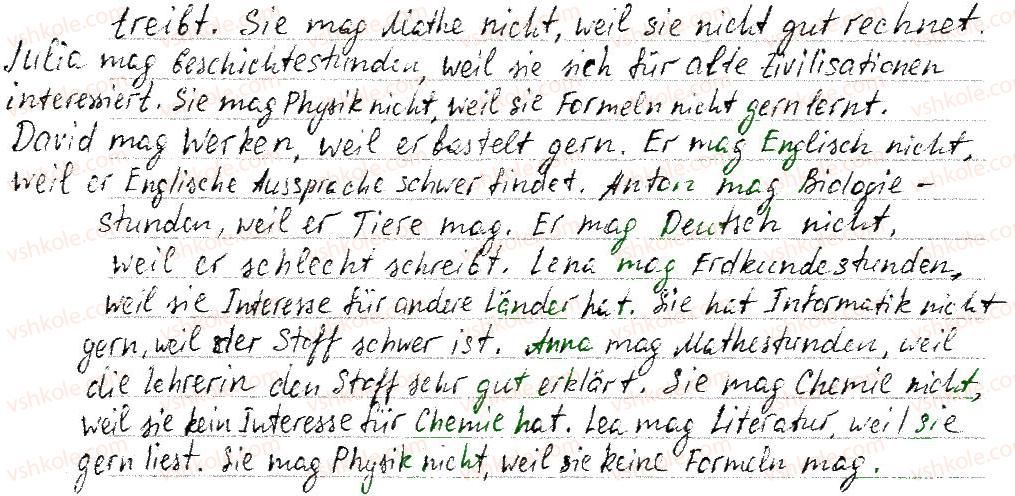 treibt. Sie mag Mathe nicht, weil sie nicht gut rechnet.
Julia mag Geschichtestunden, weil sie sich für alte Zivilisationen
interessiert. Sie mag Physik nicht, weil sie Formeln nicht gern lernt.
David mag Werken, weil er bastelt gern. Er mag Englisch nicht,
weil er Englische Aussprache schwer findet. Anton mag Biologie-
stunden, weil er Tiere mag. Er mag Deutsch nicht,
weil er schlecht schreibt. Lena mag Erdkundestunden,
weil sie Interesse für andere Länder hat. Sie hat Informatik nicht
gern, weil der Stoff schwer ist. Anna mag Mathestunden, weil
die Lehrerin den Stoff sehr gut erklärt. Sie mag Chemie nicht,
weil sie kein Interesse für Chemie hat. Lea mag Literatur, weil sie
gern liest. Sie mag Physik nicht, weil sie keine Formeln mag.